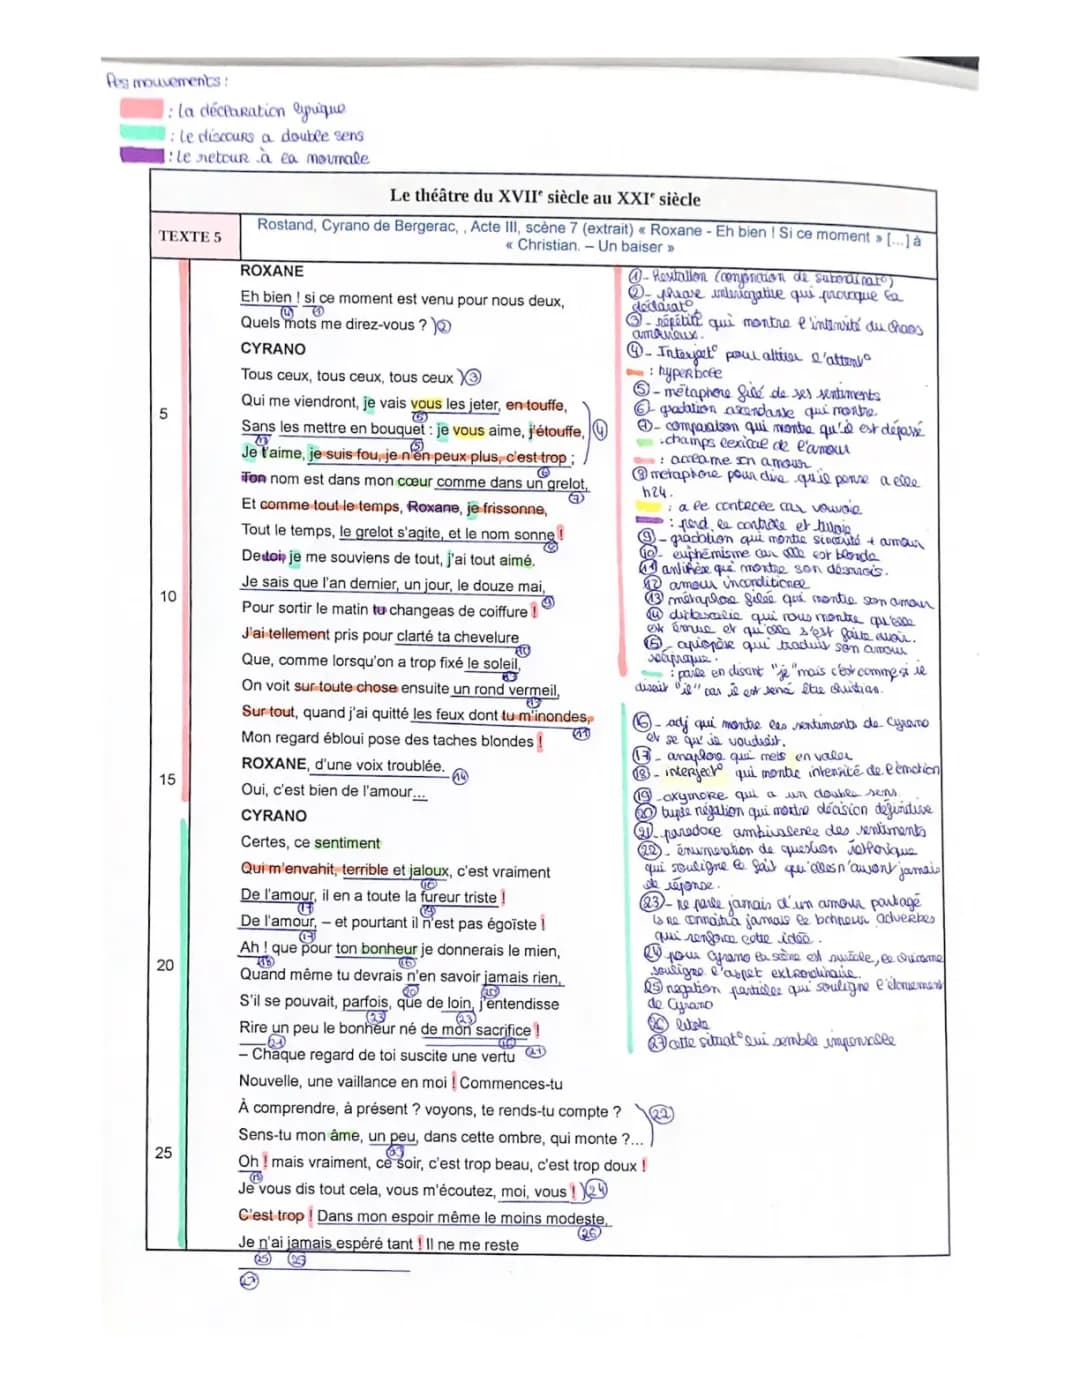 Les mouvements :
: la déclaration lyrique
: le discours a double sens
: le retour à la normale
Le théâtre du XVIIe siècle au XXIe siècle
TEXTE 5
Rostand, Cyrano de Bergerac, , Acte III, scène 7 (extrait) « Roxane - Eh bien ! Si ce moment » [...] à
« Christian. – Un baiser »
ROXANE
Eh bien ! si ce moment est venu pour nous deux,
Quels mots me direz-vous ? ②
CYRANO
Tous ceux, tous ceux, tous ceux ③
5 Qui me viendront, je vais vous les jeter, en touffe,
Sans les mettre en bouquet : je vous aime, j'étouffe,
Je t'aime, je suis fou, je n'en peux plus, c'est trop ;
Ton nom est dans mon cœur comme dans un grelot,
Et comme tout le temps, Roxane, je frissonne,
Tout le temps, le grelot s'agite, et le nom sonne !
De toi, je me souviens de tout, j'ai tout aimé.
10 Je sais que l'an dernier, un jour, le douze mai,
Pour sortir le matin tu changeas de coiffure !
J'ai tellement pris pour clarté ta chevelure
Que, comme lorsqu'on a trop fixé le soleil,
On voit sur toute chose ensuite un rond vermeil,
Sur tout, quand j'ai quitté les feux dont tu m'inondes,
Mon regard ébloui pose des taches blondes !
ROXANE, d'une voix troublée.
15 Oui, c'est bien de l'amour...
CYRANO
Certes, ce sentiment
Qui m'envahit, terrible et jaloux, c'est vraiment
De l'amour, il en a toute la fureur triste !
De l'amour, – et pourtant il n'est pas égoïste !
Ah ! que pour ton bonheur je donnerais le mien,
20 Quand même tu devrais n'en savoir jamais rien,
S'il se pouvait, parfois, que de loin, j'entendisse
Rire un peu le bonheur né de mon sacrifice !
– Chaque regard de toi suscite une vertu
Nouvelle, une vaillance en moi ! Commences-tu
À comprendre, à présent ? voyons, te rends-tu compte ?
Sens-tu mon âme, un peu, dans cette ombre, qui monte ?...
25 Oh ! mais vraiment, ce soir, c'est trop beau, c'est trop doux !
Je vous dis tout cela, vous m'écoutez, moi, vous ! ㉔
C'est trop ! Dans mon espoir même le moins modeste,
Je n'ai jamais espéré tant ! Il ne me reste
①- Hesitation (conjonction de subordinat°)
②- phrase interrogative qui provoque la
déclarat°
③- répétit° qui montre l'intensité du chaos
amoureux.
④- Interject° pour attirer l'attent°
: hyperbole
⑤- métaphore filé de ses sentiments
⑥- gradation ascendante qui montre
⑦- comparaison qui montre qu'il est dépassé
: champs lexical de l'amour
⑧ métaphore pour dire qu'il pense a elle
h24.
: perd le contrôle et tutoie
⑨- gradation qui montre sincérité + amour
⑩- euphémisme car elle est blonde
⑪ antithèse qui montre son désarrois.
⑫ amour inconditionel
⑬ métaphore filée qui montre son amour
⑭ didascalie qui nous montre qu'elle
est émue et qu'elle s'est faite avoir.
⑮- aposiopèse qui traduit son amour
: parle en disant "je" mais c'est comme si il
disait "il" car il est sensé être christian.
⑯- adj qui montre les sentiments de Cyrano
et se qu'il voudrait.
⑰- anaphore qui mets en valeur
⑱- interject° qui montre intensité de l'émotion
⑲- oxymore qui a un double sens.
⑳ triple négation qui montre décision définitive
㉑- paradoxe ambivalence des sentiments
㉒- énumération de question réthorique
qui souligne le fait qu'elles n'auront jamais
de réponse.
㉓- ne parle jamais d'un amour partagé
ne connaitra jamais le bonheur adverbes
qui renforce cette idée.
㉔ pour Cyrano la scène est
souligne l'aspect extraordinaire.
㉕ négation partielle qui souligne l'étonnement
de Cyrano
㉖ litote
㉗ cette situat° lui semble impensable